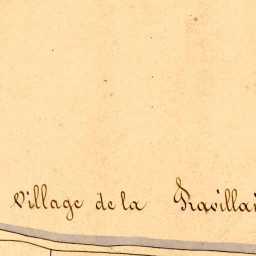 Village de la Ravillai